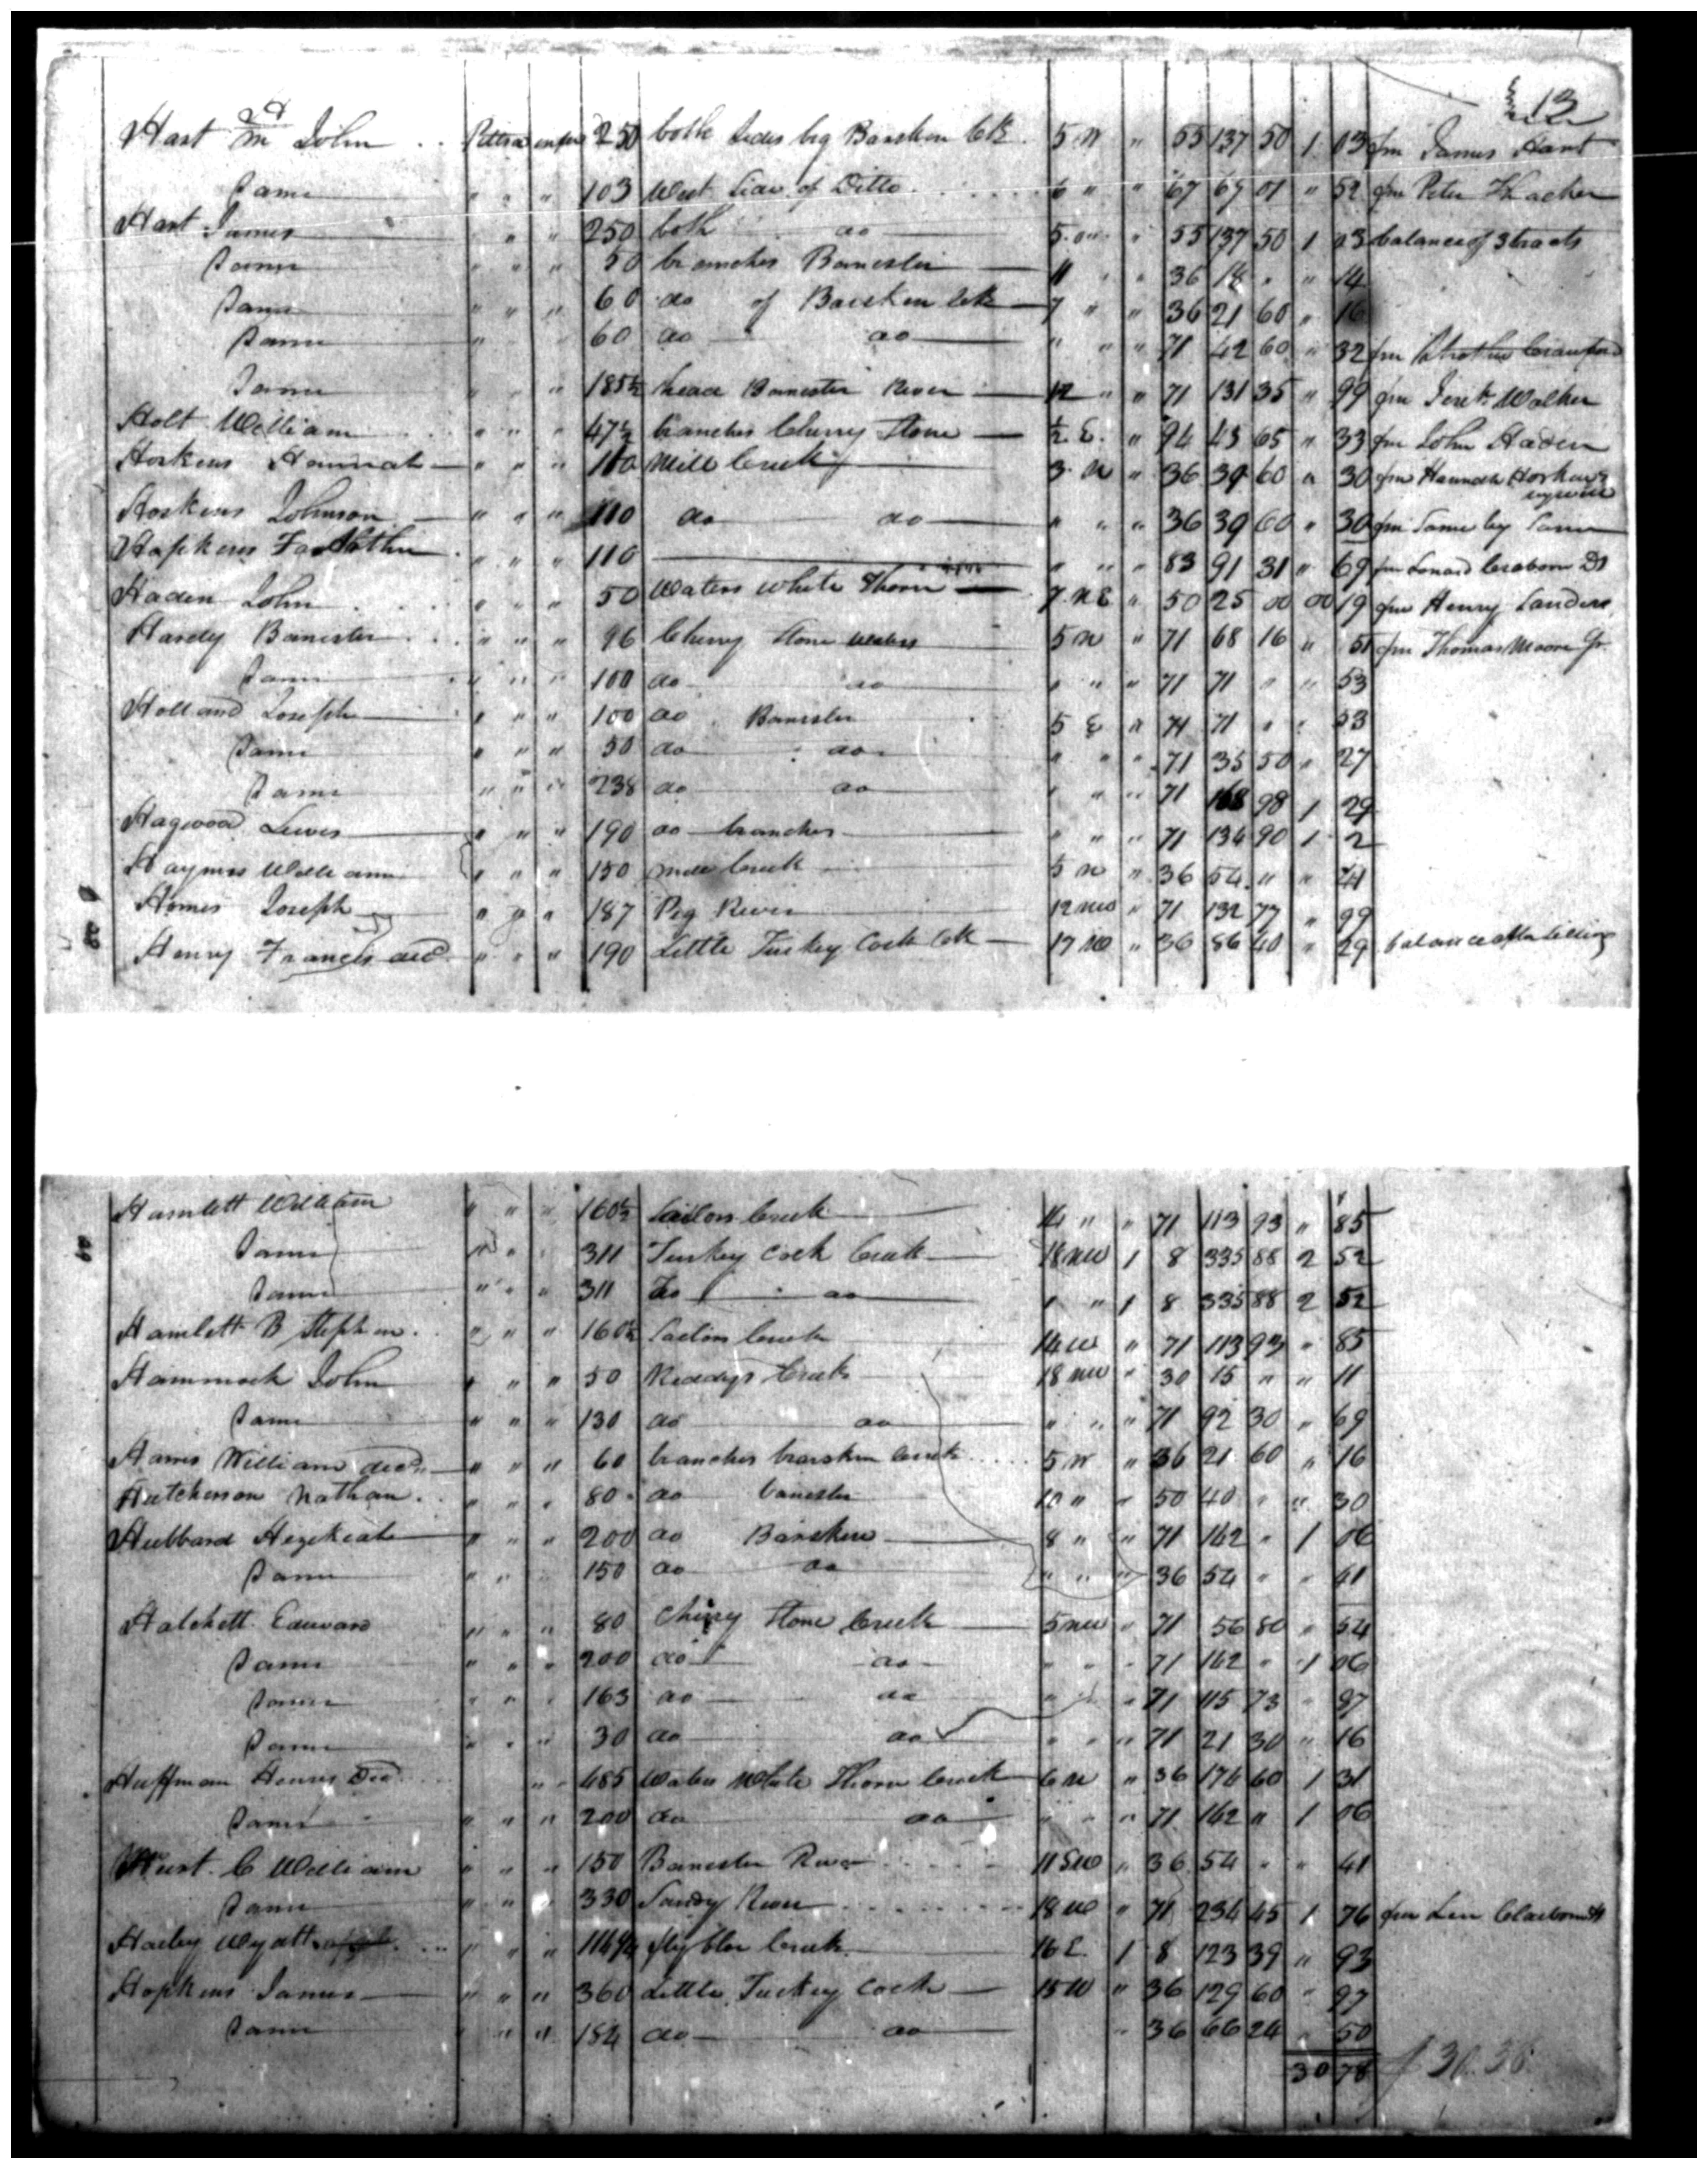 13
Hart M John . . Pittsa " " 250 both sides big Bearskin Ck . 5 N " 55 137 50 1 03 fm James Hart
Same " " " 103 West side of Ditto 6 " " 67 69 01 " 52 fm Peter Thacker
Hart James " " 250 both do 5 " " 55 137 50 1 03 balance of 3 tracts
Same " " " 50 branches Banester 11 " " 36 18 " " 14
Same " " " 60 do of Bearskin Ck 7 " " 36 21 60 " 16
Same " " 60 do do " " " 71 42 60 " 32 fm Crawford
Same " " 185½ head Banester River 12 " " 71 131 35 " 99 fm Walker
Holt William " " " 47½ branches Cherry Stone ½ E. " 94 43 65 " 33 fm John Haden
Hoskins Hannah " " " 110 Mill Creek 3 N " 36 39 60 " 30 fm Hannah Hoskins
Hoskins Johnson " " " 110 do do " " " 36 39 60 " 30 fm Same by Same
Hopkins " " " 110 " " " 83 91 31 " 69 fm Claborn
Haden John " " " 50 Waters white Thorn 7 N E " 50 25 00 00 19 fm Henry Landers
Hardy Banester " " " 96 Cherry Stone waters 5 N " 71 68 16 " 51 fm Thomas Moore Jr
Same " " " 100 do do " " " 71 71 " " 53
Holland Joseph " " " 100 do Banester 5 E " 71 71 " " 53
Same " " " 50 do do " " " 71 35 50 " 27
Same " " " 238 do do " " " 71 168 98 1 29
Hagwood Lewis " " " 190 do branches " " " 71 134 90 1 2
Haymes William " " " 150 mill Creek 5 N " 36 54 " " 41
Homes Joseph " " " 187 Pig River 12 NW " 71 132 77 " 99
Henry Francis decd " " " 190 Little Turkey Cock Ck 17 W " 36 86 40 " 29 balance after selling
Hamlett William " " " 160½ Sailors Creek 14 " " 71 113 93 " 85
Same " " " 311 Turkey Cock Creek 18 NW 1 8 335 88 2 52
Same " " " 311 Do do " " 1 8 335 88 2 52
Hamlett B Stephen " " " 160½ Sailors Creek 14 W " 71 113 93 " 85
Hammock John " " " 50 Creek 18 NW " 30 15 " " 11
Same " " " 130 do do " " " 71 92 30 " 69
Harris William decd " " " 60 branches bearskin creek 5 N " 36 21 60 " 16
Hutcherson Nathan " " " 80 do banester 10 " " 50 40 " " 30
Hubbard Hezekiah " " " 200 do Bearskin 8 " " 71 142 " 1 06
Same " " " 150 do do " " " 36 54 " " 41
Hatchett Edward " " " 80 Cherry Stone Creek 5 NW " 71 56 80 " 54
Same " " " 200 do do " " " 71 142 " 1 06
Same " " " 163 do do " " " 71 115 73 " 87
Same " " " 30 do do " " " 71 21 30 " 16
Huffman Henry Decd " " 485 Waters White Thorn Creek 6 N " 36 174 60 1 31
Same " " " 200 do do " " " 71 142 " 1 06
Hurt C William " " " 150 Banester River 11 SW " 36 54 " " 41
Same " " " 330 Sandy River 18 W " 71 234 45 1 76 fm Len Claiborn
Wyatt " " " Creek 16 E 1 8 123 39 " 93
Hopkins James " " " 360 Little Turkey Cock 15 W " 36 129 60 " 97
Same " " " 184 do do " 36 66 24 " 50
30 78